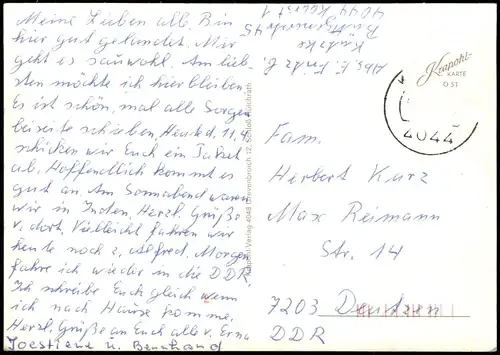 Meine Lieben alle. Bin
hier gut gelandet. Mir
geht es sauwohl. Am lieb-
sten möchte ich hierbleiben.
Es ist schön, mal alle Sorgen
beiseite schieben. Heute d. 11.4.
schicken wir Euch ein Paket
ab. Hoffentlich kommt es
gut an. Am Sonnabend waren
wir in Inden. Herzl. Grüße
v. dort. Vielleicht fahren wir
heute noch z. Alfred. Morgen
fahre ich wieder in die DDR.
Ich schreibe Euch gleich wenn
ich nach Hause komme.
Herzl. Grüße an Euch alle v. Erna
u. Bernhard
Abs. E.
4044 Kaarst 1
Krapohl-
KARTE
O 51
4044
Krapohl-Verlag 4048 Grevenbroich 12, Schloß Hülchrath
Fam.
Herbert Kurz
Max Reimann
Str. 14
7203 Deutzen
DDR